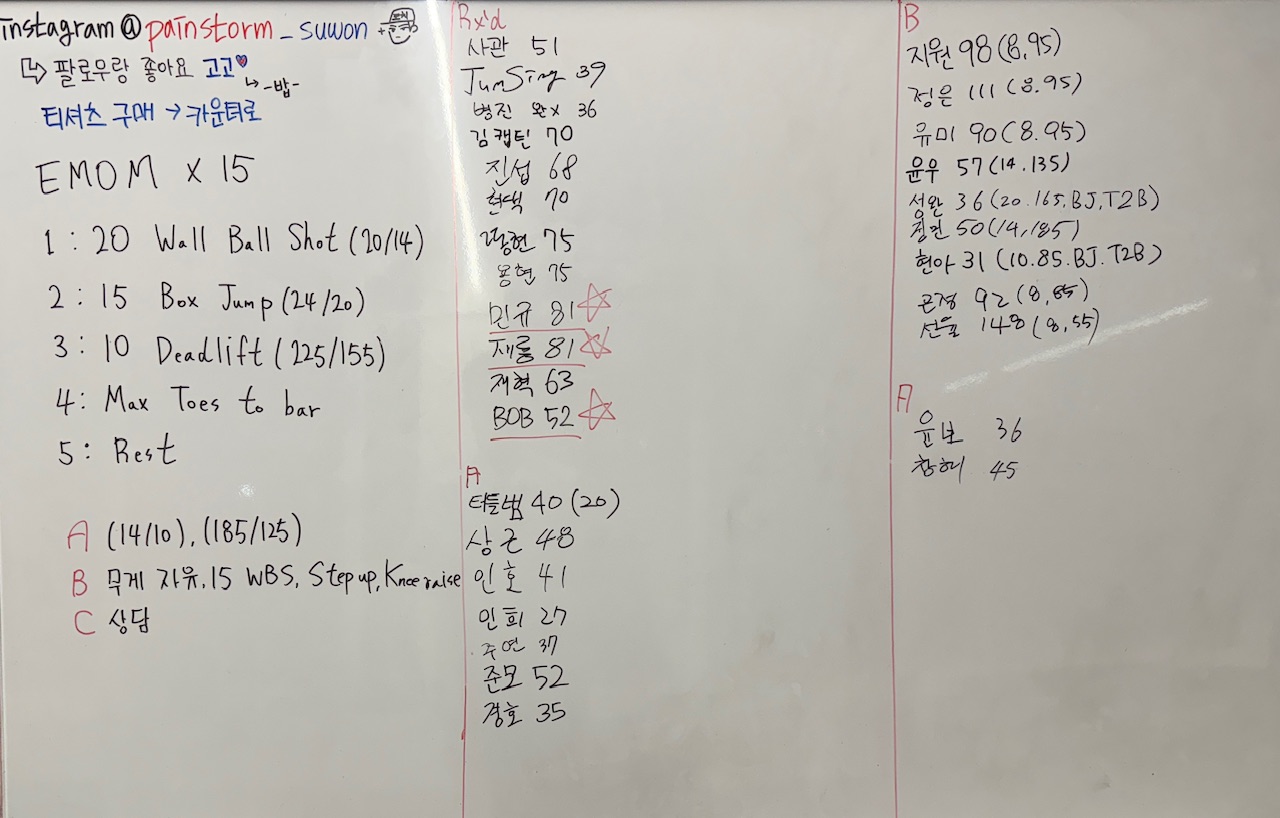 instagram@painstorm_suwon
팔로우랑 좋아요 고고♥
↳ -밥-
티셔츠 구매 → 카운터로
EMOM x 15
1 : 20 Wall Ball Shot (20/14)
2 : 15 Box Jump (24/20)
3 : 10 Deadlift (225/155)
4 : Max Toes to bar
5 : Rest
A (14/10), (185/125)
B 무게 자유, 15 WBS, Step up, Knee raise
C 상담
Rx'd
사관 51
39
병진 36
김캡틴 70
진섭 68
현택 70
광현 75
용현 75
민규 81 ☆
재룡 81 ☆
재혁 63
BOB 52 ☆
A
터틀쌤 40 (20)
상근 48
인호 41
인회 27
주연 37
준모 52
경호 35
B
지원 98 (8,95)
정은 111 (8.95)
유미 90 (8.95)
윤우 57 (14.135)
성완 36 (20.165,BJ,T2B)
50 (14,185)
현아 31 (10.85.BJ.T2B)
은정 92 (8,85)
선율 148 (8,55)
A
윤보 36
창해 45